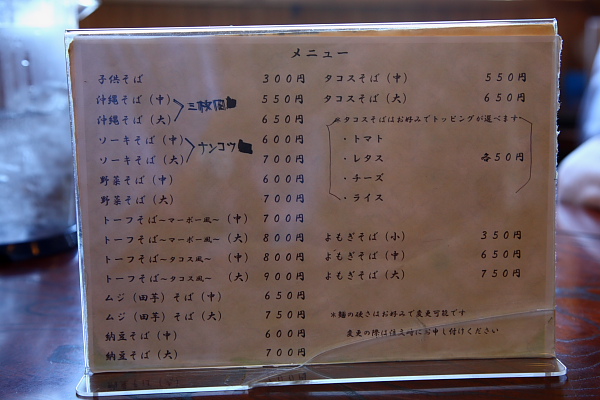 メニュー
子供そば 300円
沖縄そば(中) 550円
沖縄そば(大) 650円
三枚肉
ソーキそば(中) 600円
ソーキそば(大) 700円
ナンコツ
野菜そば(中) 600円
野菜そば(大) 700円
トーフそば~マーボー風~(中) 700円
トーフそば~マーボー風~(大) 800円
トーフそば~タコス風~(中) 800円
トーフそば~タコス風~(大) 900円
ムジ(田芋)そば(中) 650円
ムジ(田芋)そば(大) 750円
納豆そば(中) 600円
納豆そば(大) 700円
タコスそば(中) 550円
タコスそば(大) 650円
※タコスそばはお好みでトッピングが選べます
・トマト
・レタス 各50円
・チーズ
・ライス
よもぎそば(小) 350円
よもぎそば(中) 650円
よもぎそば(大) 750円
※麺の硬さはお好みで変更可能です
変更の際は注文時にお申し付けください